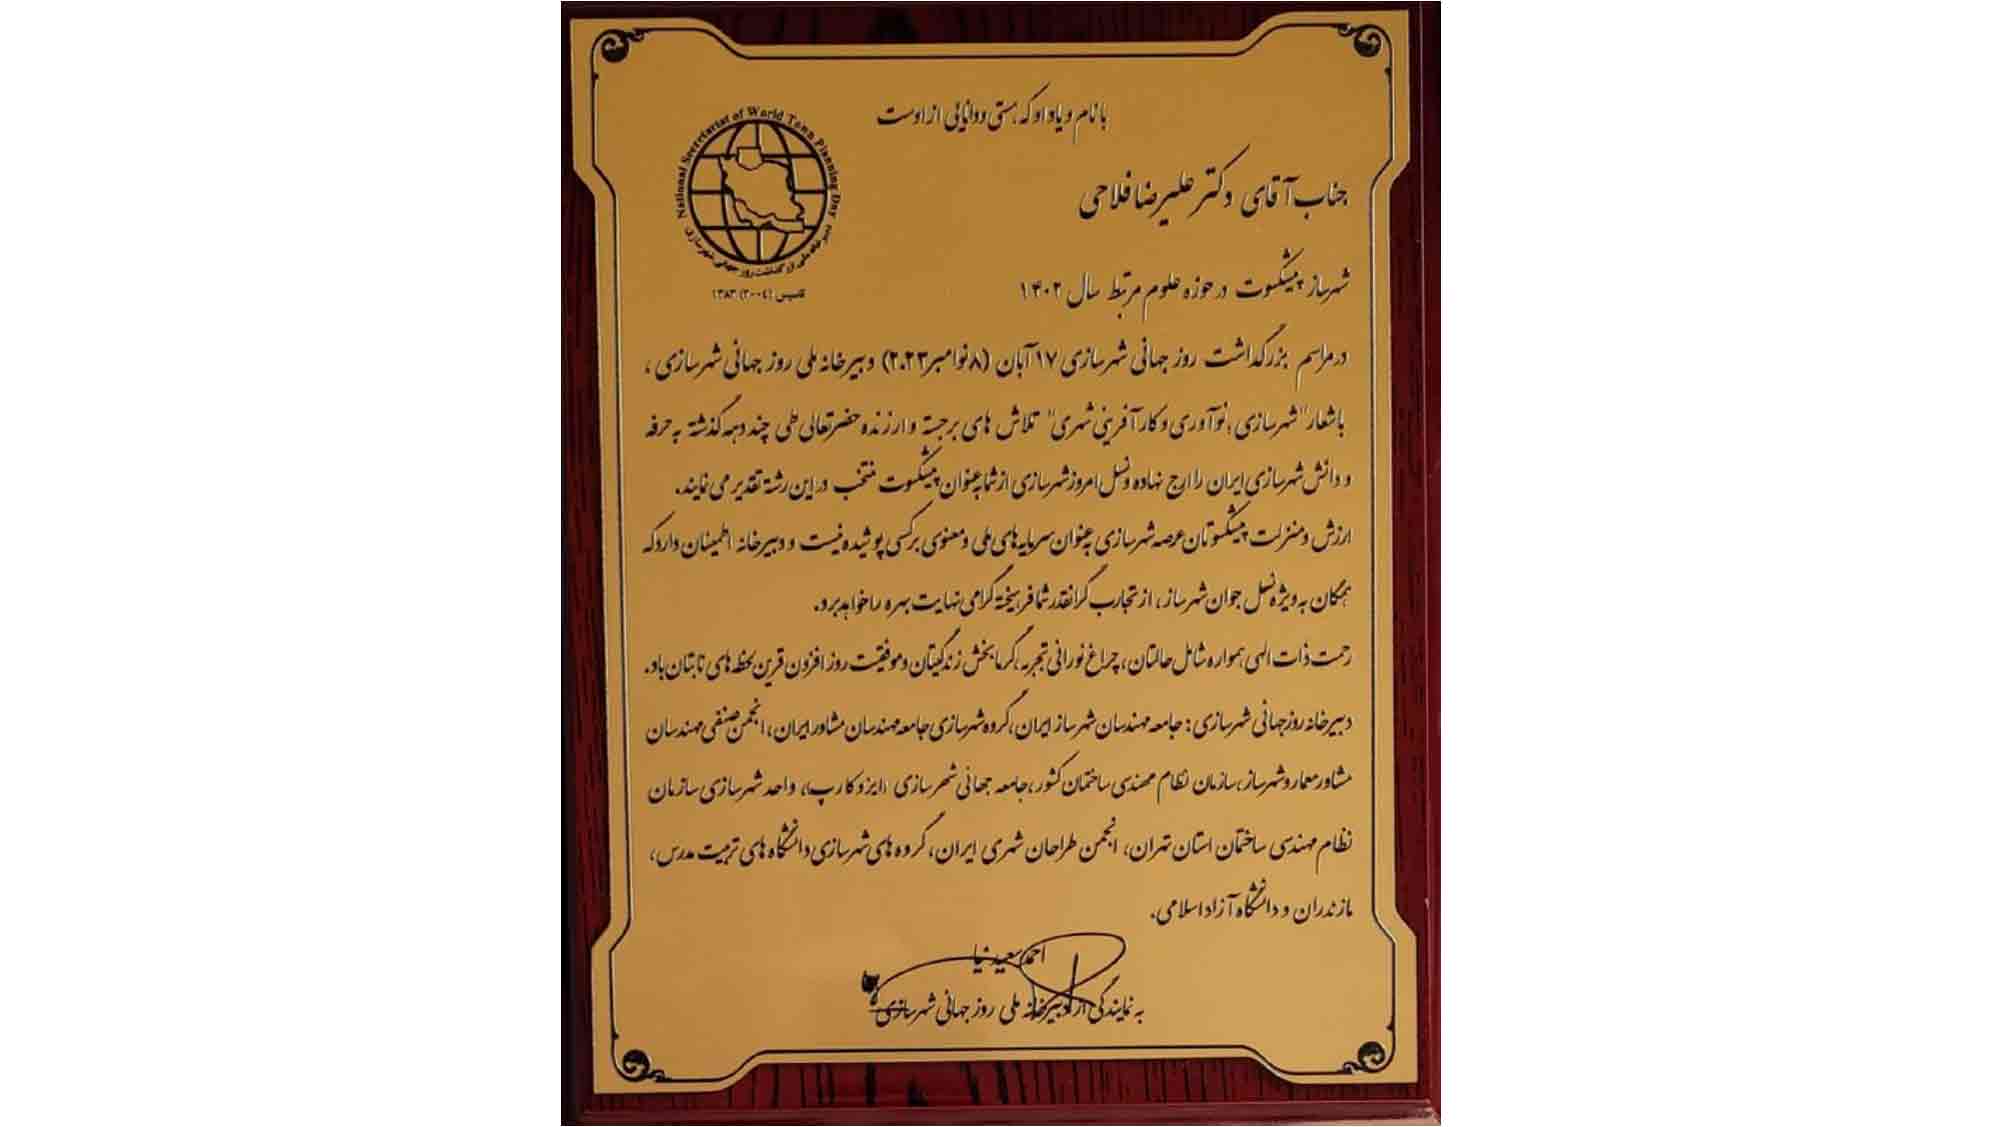 با نام و یاد او که هستی و دانایی از اوست
National Secretariat of World Town Planning Day
دبیرخانه ملی بزرگداشت روز جهانی شهرسازی
تاسیس (٢٠٠٤) ١٣٨٣
جناب آقای دکتر علیرضا فلاحی
شهرساز پیشکسوت در حوزه علوم مرتبط سال ۱۴۰۲
در مراسم بزرگداشت روز جهانی شهرسازی ۱۷ آبان (۸ نوامبر ۲۰۲۳) دبیرخانه ملی روز جهانی شهرسازی ،
با شعار "شهرسازی ، نوآوری و کارآفرینی شهری" تلاش های برجسته و ارزنده حضرتعالی طی چند دهه گذشته به حرفه
و دانش شهرسازی ایران را ارج نهاده و نسل امروز شهرسازی از شما به عنوان پیشکسوت منتخب در این رشته تقدیر می نمایند.
ارزش و منزلت پیشکسوتان عرصه شهرسازی به عنوان سرمایه های ملی و معنوی بر کسی پوشیده نیست و دبیرخانه اطمینان دارد که
همگان به ویژه نسل جوان شهرساز ، از تجارب گرانقدر شما فرهیخته گرامی نهایت بهره را خواهد برد.
رحمت ذات الهی همواره شامل حالتان ، چراغ نورانی تجربه ، گرما بخش زندگیتان و موفقیت روز افزون قرین لحظه های نابتان باد.
دبیرخانه روز جهانی شهرسازی : جامعه مهندسان شهرساز ایران ، گروه شهرسازی جامعه مهندسان مشاور ایران ، انجمن صنفی مهندسان
مشاور معمار و شهرساز ، سازمان نظام مهندسی ساختمان کشور ، جامعه جهانی شهرسازی (ایزوکارپ)، واحد شهرسازی سازمان
نظام مهندسی ساختمان استان تهران ، انجمن طراحان شهری ایران ، گروه های شهرسازی دانشگاه های تربیت مدرس ،
مازندران و دانشگاه آزاد اسلامی.
احمد سعیدنیا
به نمایندگی از دبیرخانه ملی روز جهانی شهرسازی